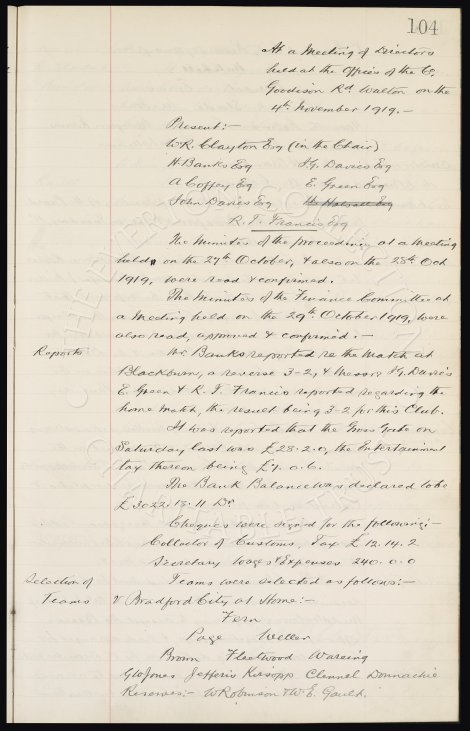 104
At a Meeting of Directors
held at the Offices of the Co.
Goodison Rd. Walton on the
4th November 1919.-
Present:-
W.R. Clayton Esq (in the Chair)
H. Banks Esq J.G. Davies Esq
A Coffey Esq E. Green Esq
John Davies Esq H. Halsall Esq
R. F. Francis Esq
The Minutes of the proceedings at a Meeting
held on the 27th October, & also on the 28th Oct
1919, were read & confirmed.
The Minutes of the Finance Committee at
a Meeting held on the 29th October 1919, were
also read, approved & confirmed.-
Reports Mr Banks reported re the Match at
Blackburn, a reverse 3-2, & Messrs J.G. Davies
E. Green & R. F. Francis reported regarding the
home match, the result being 3-2 for this Club.
It was reported that the Gross Gate on
Saturday last was £28.2.0, the Entertainment
tax thereon being £7.0.6.
The Bank Balance was declared to be
£3022.18.11 Dr.
Cheques were signed for the following:-
Collector of Customs, Tax £12.14.2
Secretary Wages & Expenses 240.0.0
Selection of Teams were selected as follows:-
Teams v Bradford City at Home:-
Fern
Page Weller
Brown Fleetwood Wareing
G W Jones Jefferis Kirsopp Clennel Donnachie
Reserves:- W Robinson & W. E. Gault.